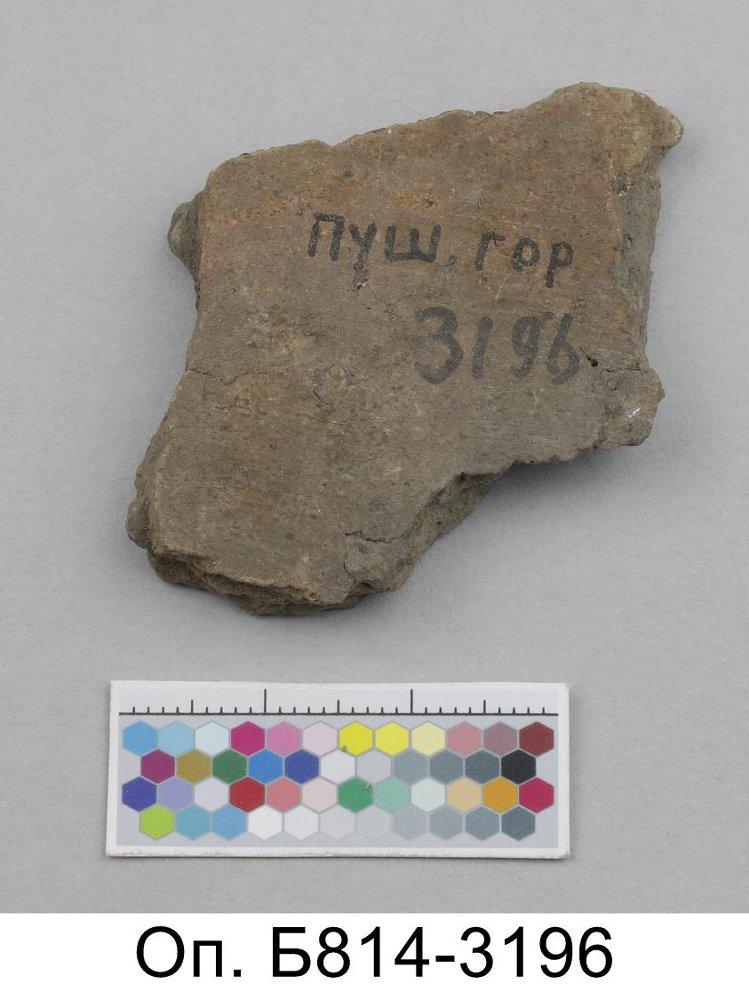 пуш. гор
3196
Оп. Б814-3196